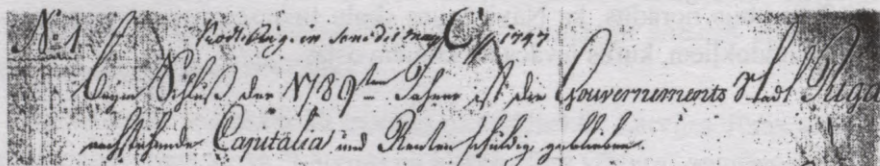 No 1 1747
Beym Schluß des 1789ten Jahres ist die Gouvernements Stadt Riga
nachstehende Capitalia und Renten schuldig geblieben.